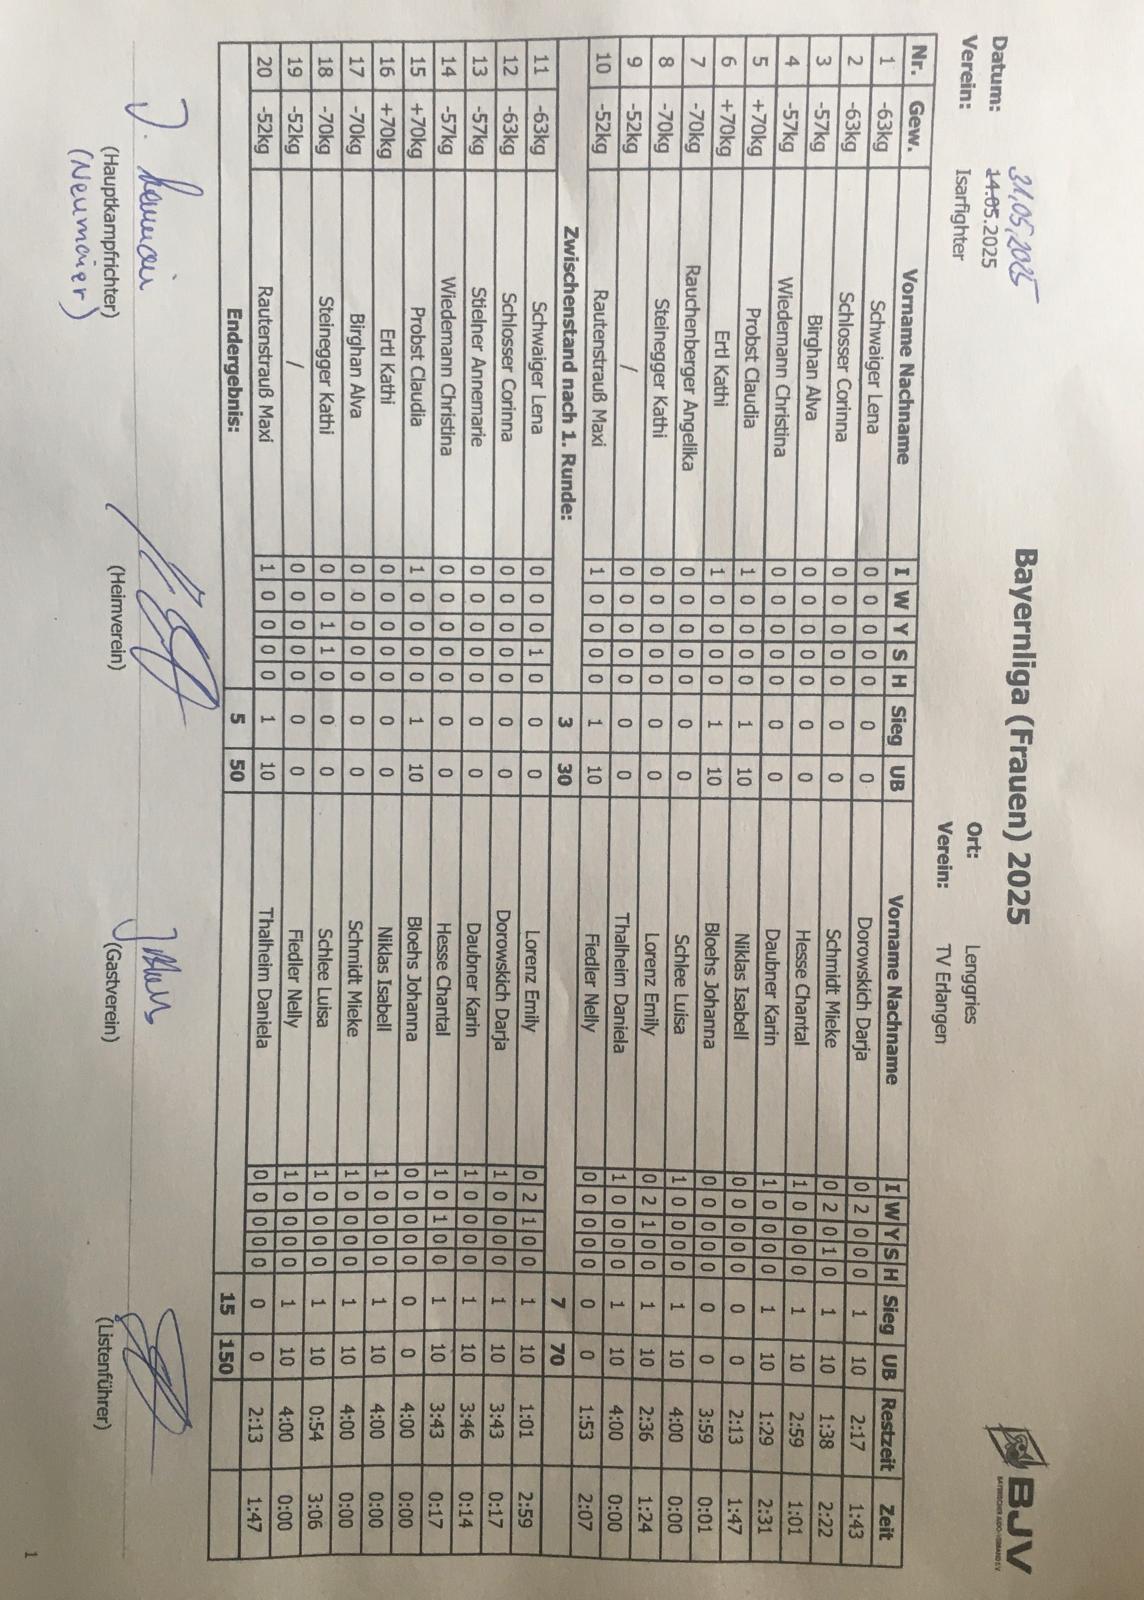 Bayernliga (Frauen) 2025
BJV
BAYERISCHER JUDO-VERBAND E.V.
31.05.2025
Datum: 14.05.2025 Ort: Lenggries
Verein: Isarfighter Verein: TV Erlangen
Nr. Gew. Vorname Nachname I W Y S H Sieg UB Vorname Nachname I W Y S H Sieg UB Restzeit Zeit
1 -63kg Schwaiger Lena 0 0 0 0 0 0 0 Dorowskich Darja 0 2 0 0 0 1 10 2:17 1:43
2 -63kg Schlosser Corinna 0 0 0 0 0 0 0 Schmidt Mieke 0 2 0 1 0 1 10 1:38 2:22
3 -57kg Birghan Alva 0 0 0 0 0 0 0 Hesse Chantal 1 0 0 0 0 1 10 2:59 1:01
4 -57kg Wiedemann Christina 0 0 0 0 0 0 0 Daubner Karin 1 0 0 0 0 1 10 1:29 2:31
5 +70kg Probst Claudia 1 0 0 0 0 1 10 Niklas Isabell 0 0 0 0 0 0 0 2:13 1:47
6 +70kg Ertl Kathi 1 0 0 0 0 1 10 Bloehs Johanna 0 0 0 0 0 0 0 3:59 0:01
7 -70kg Rauchenberger Angelika 0 0 0 0 0 0 0 Schlee Luisa 1 0 0 0 0 1 10 4:00 0:00
8 -70kg Steinegger Kathi 0 0 0 0 0 0 0 Lorenz Emily 0 2 1 0 0 1 10 2:36 1:24
9 -52kg / 0 0 0 0 0 0 0 Thalheim Daniela 1 0 0 0 0 1 10 4:00 0:00
10 -52kg Rautenstrauß Maxi 1 0 0 0 0 1 10 Fiedler Nelly 0 0 0 0 0 0 0 1:53 2:07
Zwischenstand nach 1. Runde: 3 30 7 70
11 -63kg Schwaiger Lena 0 0 0 1 0 0 0 Lorenz Emily 0 2 1 0 0 1 10 1:01 2:59
12 -63kg Schlosser Corinna 0 0 0 0 0 0 0 Dorowskich Darja 1 0 0 0 0 1 10 3:43 0:17
13 -57kg Stielner Annemarie 0 0 0 0 0 0 0 Daubner Karin 1 0 0 0 0 1 10 3:46 0:14
14 -57kg Wiedemann Christina 0 0 0 0 0 0 0 Hesse Chantal 1 0 1 0 0 1 10 3:43 0:17
15 +70kg Probst Claudia 1 0 0 0 0 1 10 Bloehs Johanna 0 0 0 0 0 0 0 4:00 0:00
16 +70kg Ertl Kathi 0 0 0 0 0 0 0 Niklas Isabell 1 0 0 0 0 1 10 4:00 0:00
17 -70kg Birghan Alva 0 0 0 0 0 0 0 Schmidt Mieke 1 0 0 0 0 1 10 4:00 0:00
18 -70kg Steinegger Kathi 0 0 1 1 0 0 0 Schlee Luisa 1 0 0 0 0 1 10 0:54 3:06
19 -52kg / 0 0 0 0 0 0 0 Fiedler Nelly 1 0 0 0 0 1 10 4:00 0:00
20 -52kg Rautenstrauß Maxi 1 0 0 0 0 1 10 Thalheim Daniela 0 0 0 0 0 0 0 2:13 1:47
Endergebnis: 5 50 15 150
(Hauptkampfrichter) (Heimverein) (Gastverein) (Listenführer)
(Neumaier)
1